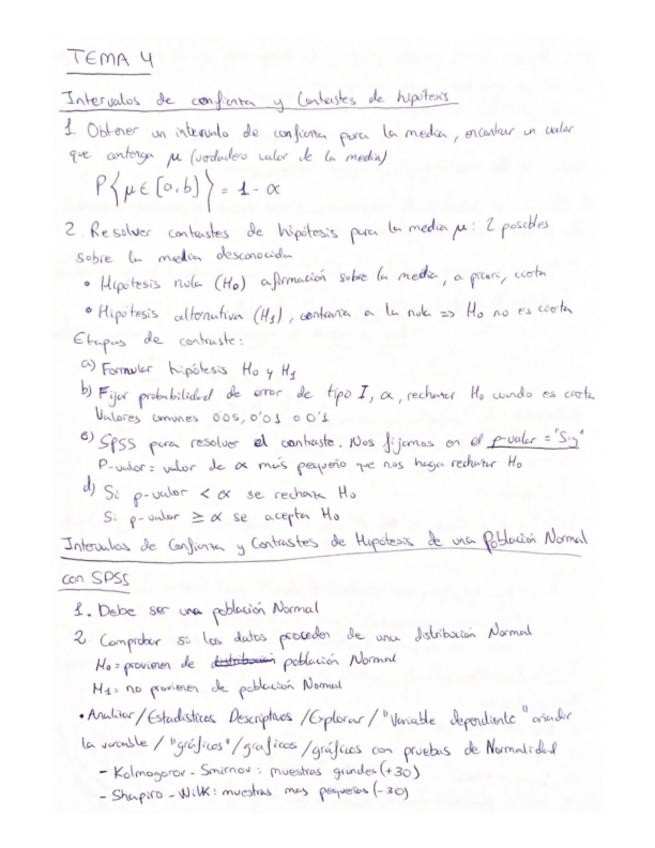 TEMA 4
Intervalos de confianza y Contrastes de hipótesis
1 Obtener un intervalo de confianza para la media, encontrar un valor
que contenga μ (verdadero valor de la media)
P{μ ∈ [a,b]} = 1 - α
2. Resolver contrastes de hipótesis para la media μ: 2 posibles
sobre la media desconocida
• Hipótesis nula (H0) afirmación sobre la media, a priori, cierta
• Hipótesis alternativa (H1), contraria a la nula => H0 no es cierta
Etapas de contraste:
a) Formular hipótesis H0 y H1
b) Fijar probabilidad de error de tipo I, α, rechazar H0 cuando es cierta
Valores comunes 0'05, 0'01 o 0'1
c) SPSS para resolver el contraste. Nos fijamos en el p-valor = "Sig"
P-valor = valor de α más pequeño que nos haga rechazar H0
d) Si p-valor < α se rechaza H0
Si p-valor ≥ α se acepta H0
Intervalos de Confianza y Contrastes de Hipótesis de una Población Normal
con SPSS
1. Debe ser una población Normal
2 Comprobar si los datos proceden de una distribución Normal
H0 = provienen de distribución población Normal
H1 = no provienen de población Normal
• Analizar / Estadísticos Descriptivos / Explorar / "Variable dependiente" añadir
la variable / "gráficos" / graficos / gráficos con pruebas de Normalidad
- Kolmogorov - Smirnov: muestras grandes (+30)
- Shapiro - Wilk: muestras mas pequeñas (-30)